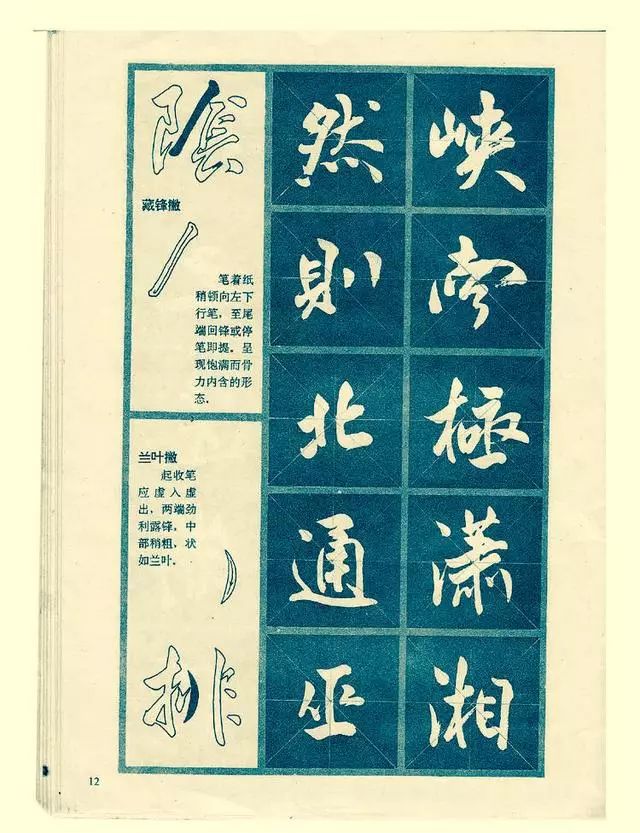 陰
藏锋撇
笔着纸
稍顿向左下
行笔，至尾
端回锋或停
笔即提。呈
现饱满而骨
力内含的形
态。
兰叶撇
起收笔
应虚入虚
出，两端劲
利露锋，中
部稍粗，状
如兰叶。
排
然則北通巫
峡南極潇湘
12